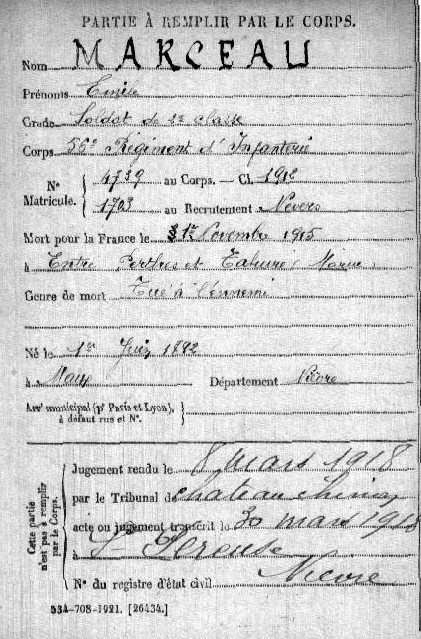 PARTIE À REMPLIR PAR LE CORPS.
Nom MARCEAU
Prénoms Emile
Grade Soldat de 2e classe
Corps 56e Régiment d'Infanterie
N° Matricule. 4739 au Corps. — Cl. 1912
1703 au Recrutement Nevers
Mort pour la France le 1er Novembre 1915
à Entre Perthes et Tahure (Marne)
Genre de mort Tué à l'ennemi
Né le 1er Juin 1892
à Département Nièvre
Arrt municipal (pr Paris et Lyon),
à défaut rue et N°.
Cette partie n'est pas à remplir par le Corps.
Jugement rendu le 8 mars 1918
par le Tribunal de Chateau Chinon
acte ou jugement transcrit le 30 mars 1918
à St Péreuse
Nièvre
N° du registre d'état civil
534-708-1921. [26434.]